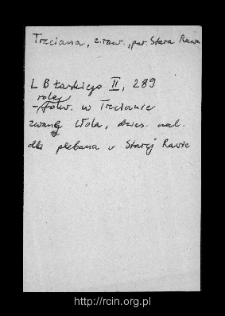 Trzciana, z. raw., par Stara Rawa
L B Łaskiego II, 289
role
folw. w Trzcianie
zwany Wola, dzies. nal.
dla plebana w Starej Rawie
http://rcin.org.pl